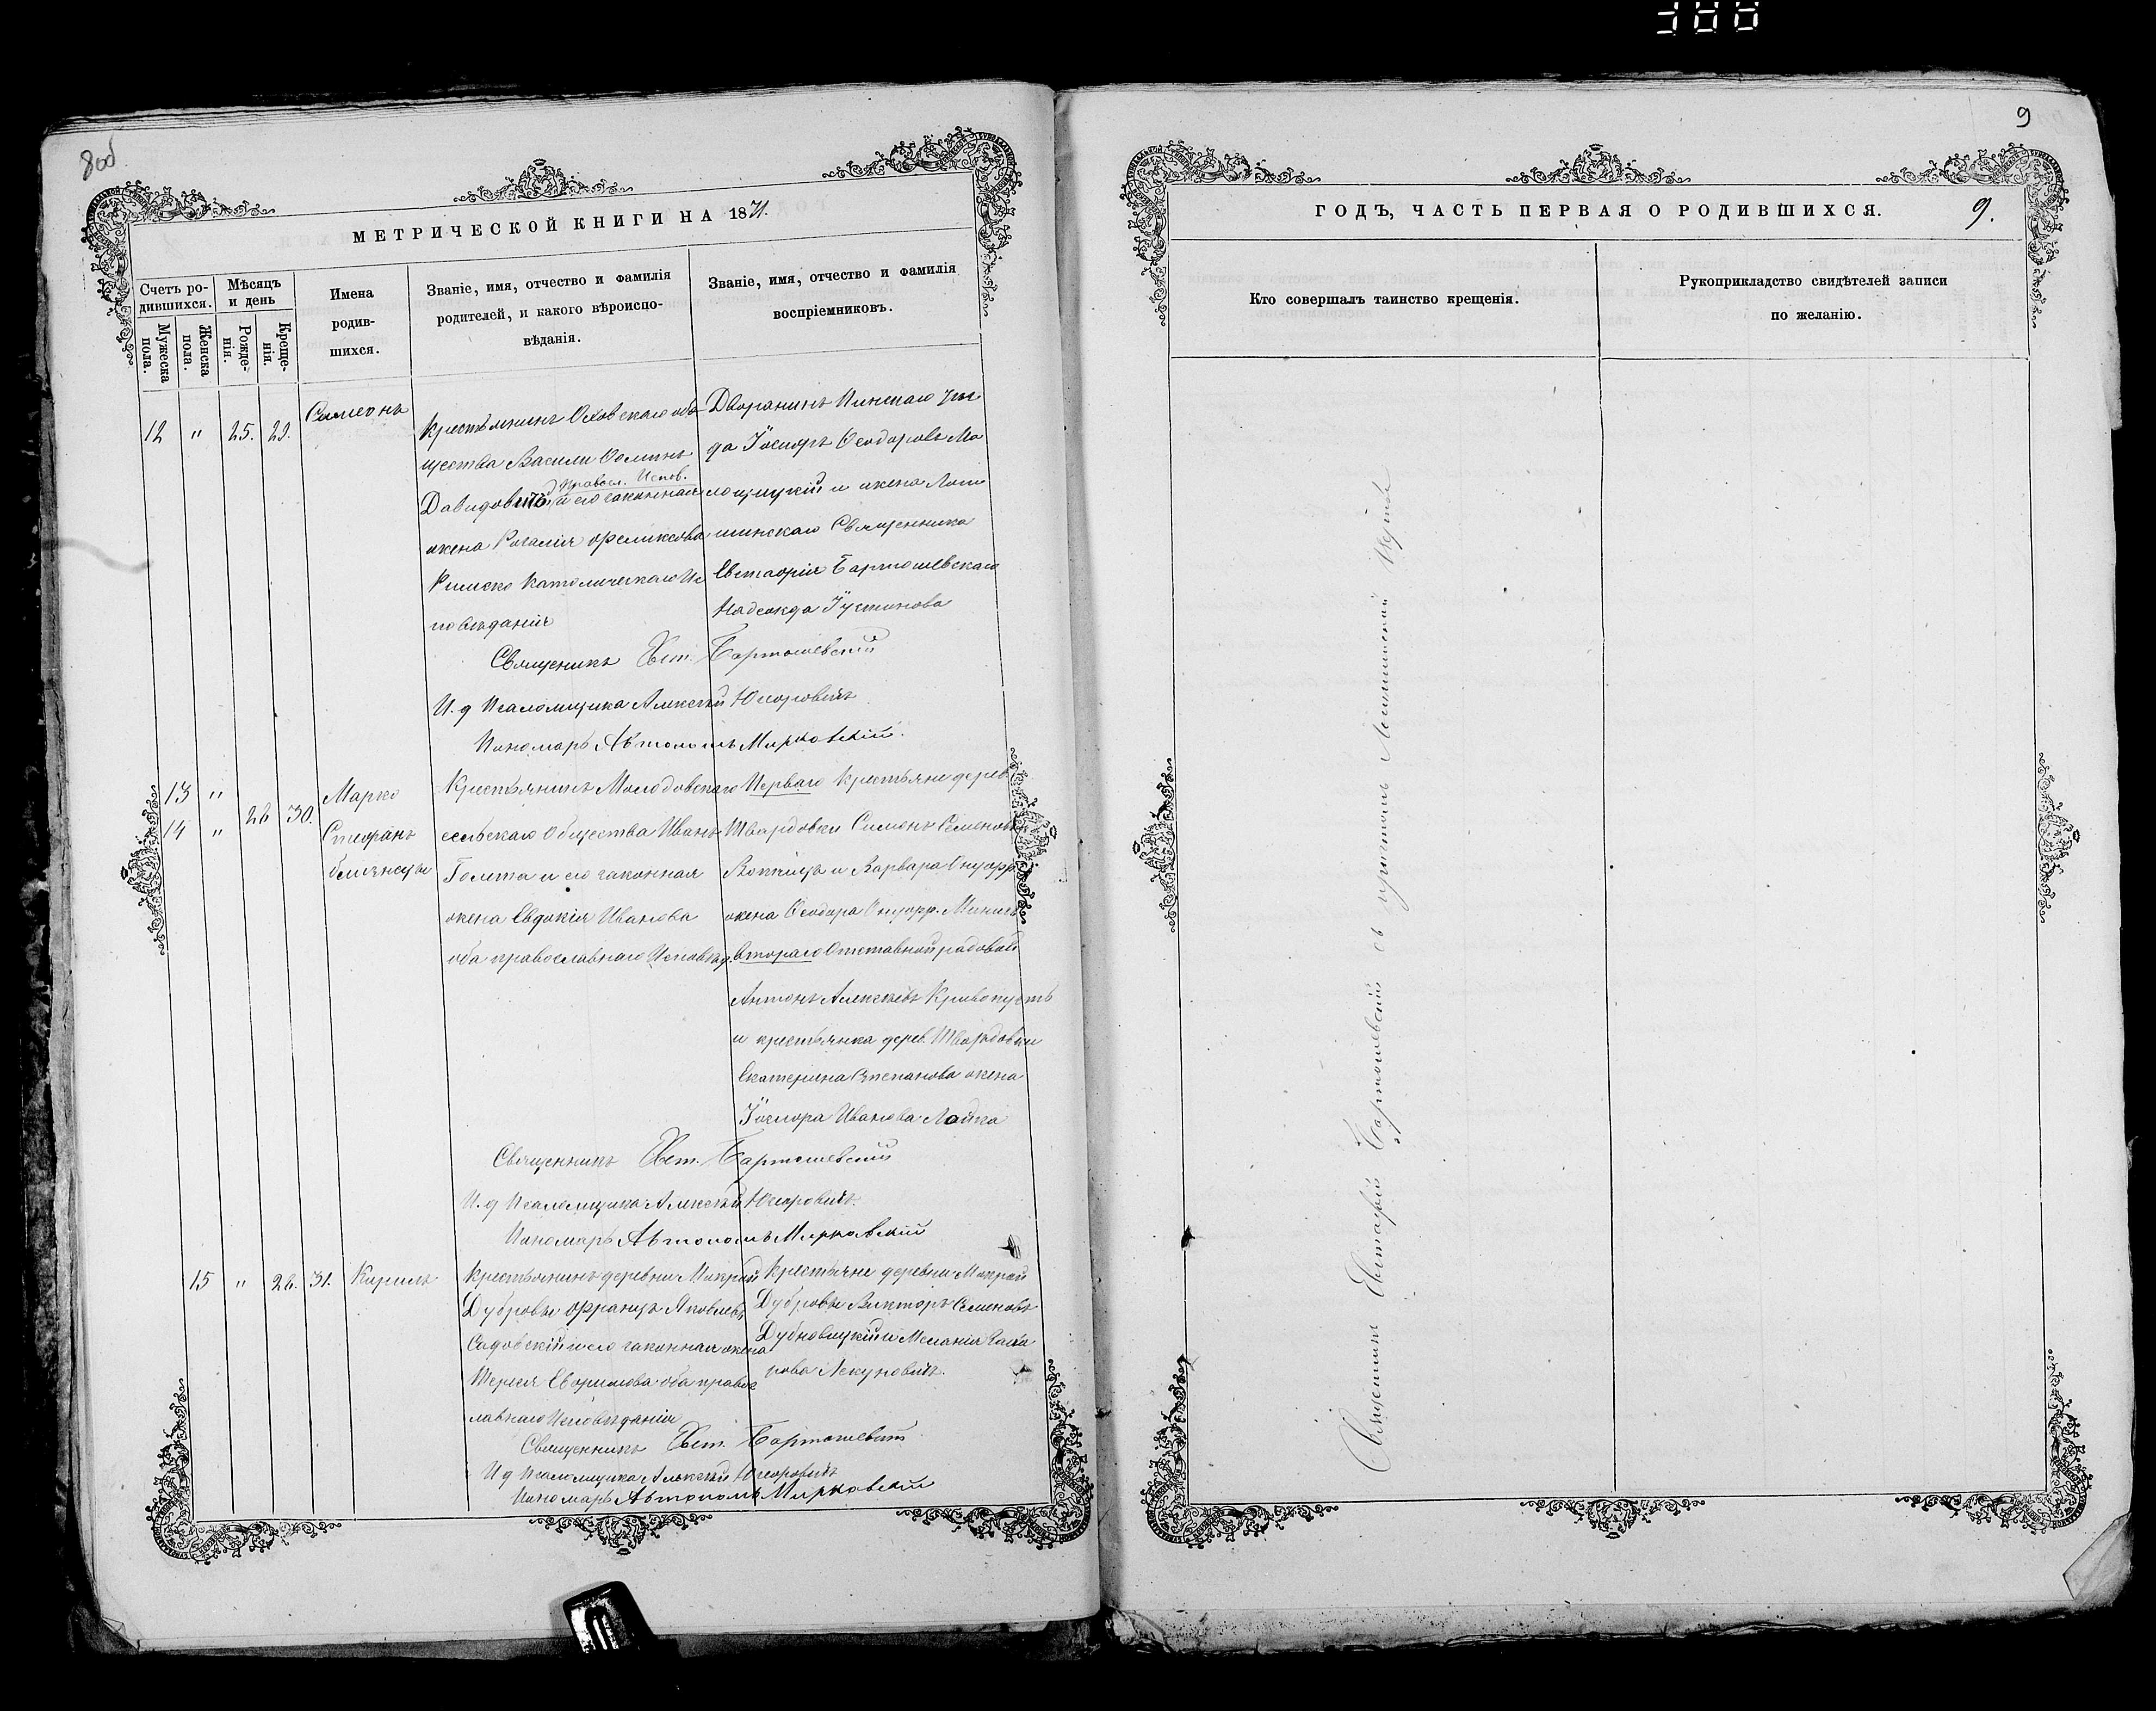 8об
МЕТРИЧЕСКОЙ КНИГИ НА 1871.
Счетъ ро-
дившихся.
Мѣсяцъ
и день
Имена
родив-
шихся.
Званіе, имя, отчество и фамилія
родителей, и какого вѣроиспо-
вѣданія.
Званіе, имя, отчество и фамилія
воспріемниковъ.
Мужеска
пола.
Женска
пола.
Рожде-
нія.
Креще-
нія.
12 " 25. 29.
Симеонъ
Крестьянинъ Оховскаго об
щества Васили Ѳоминъ
Правосл. Испов.
Давидовичъ и его законная
жена Розалія Феликсова
Римско Католическаго Ис
повѣданія
Дворанинъ Пинскаго Уѣз
да Іосифъ Ѳеодоровъ Мо
лощицкій и жена Логи
шинскаго Священника
Евстафія Бартошевскаго
Надежда Іустинова
Священикъ Евст. Бартошевский
И. д Псаломщика Алексѣй
Пономарь Автономъ Мирковскій.
13 "
14 "
26 30.
Марко
Стефанъ
близнецы
Крестьянинъ Молодовскаго
сельскаго Общества Иванъ
и его законная
жена Евдокія Иванова
оба православнаго Исповѣд.
Перваго Крестьяне дерев
Твардовки Симонъ Семеновъ
и Варвара Онуфр
жена Ѳеодора Онуфр.
Втораго Отставной рядовой
Антонъ Алексѣевъ Кривопустъ
и крестьянка дерев. Твардовки
Екатерина Степанова жена
Іосифа Иванова
Священникъ Евст. Бартошевский
И. д Псаломщика Алексѣй
Пономарь Автономъ Мирковскій
15 " 26. 31.
Кирилъ
Крестьянинъ деревни Мокрой
Дубровы Францъ Яковлевъ
Садовскій и его законная жена
Евфимова оба правос
лавнаго Исповѣданія
Крестьяне деревни Мокрой
Дубровы Викторъ Семеновъ
Дубновицкій и Меланія
Священникъ Евст. Бартошевский
И д Псаломщика Алексѣй
Пономарь Автономъ Мирковскій
9
ГОДЪ, ЧАСТЬ ПЕРВАЯ О РОДИВШИХСЯ.
9.
Кто совершалъ таинство крещенія.
Рукоприкладство свидѣтелей записи
по желанію.
Священникъ Евстафій Бартошевский съ причтомъ Логишинской Церкви